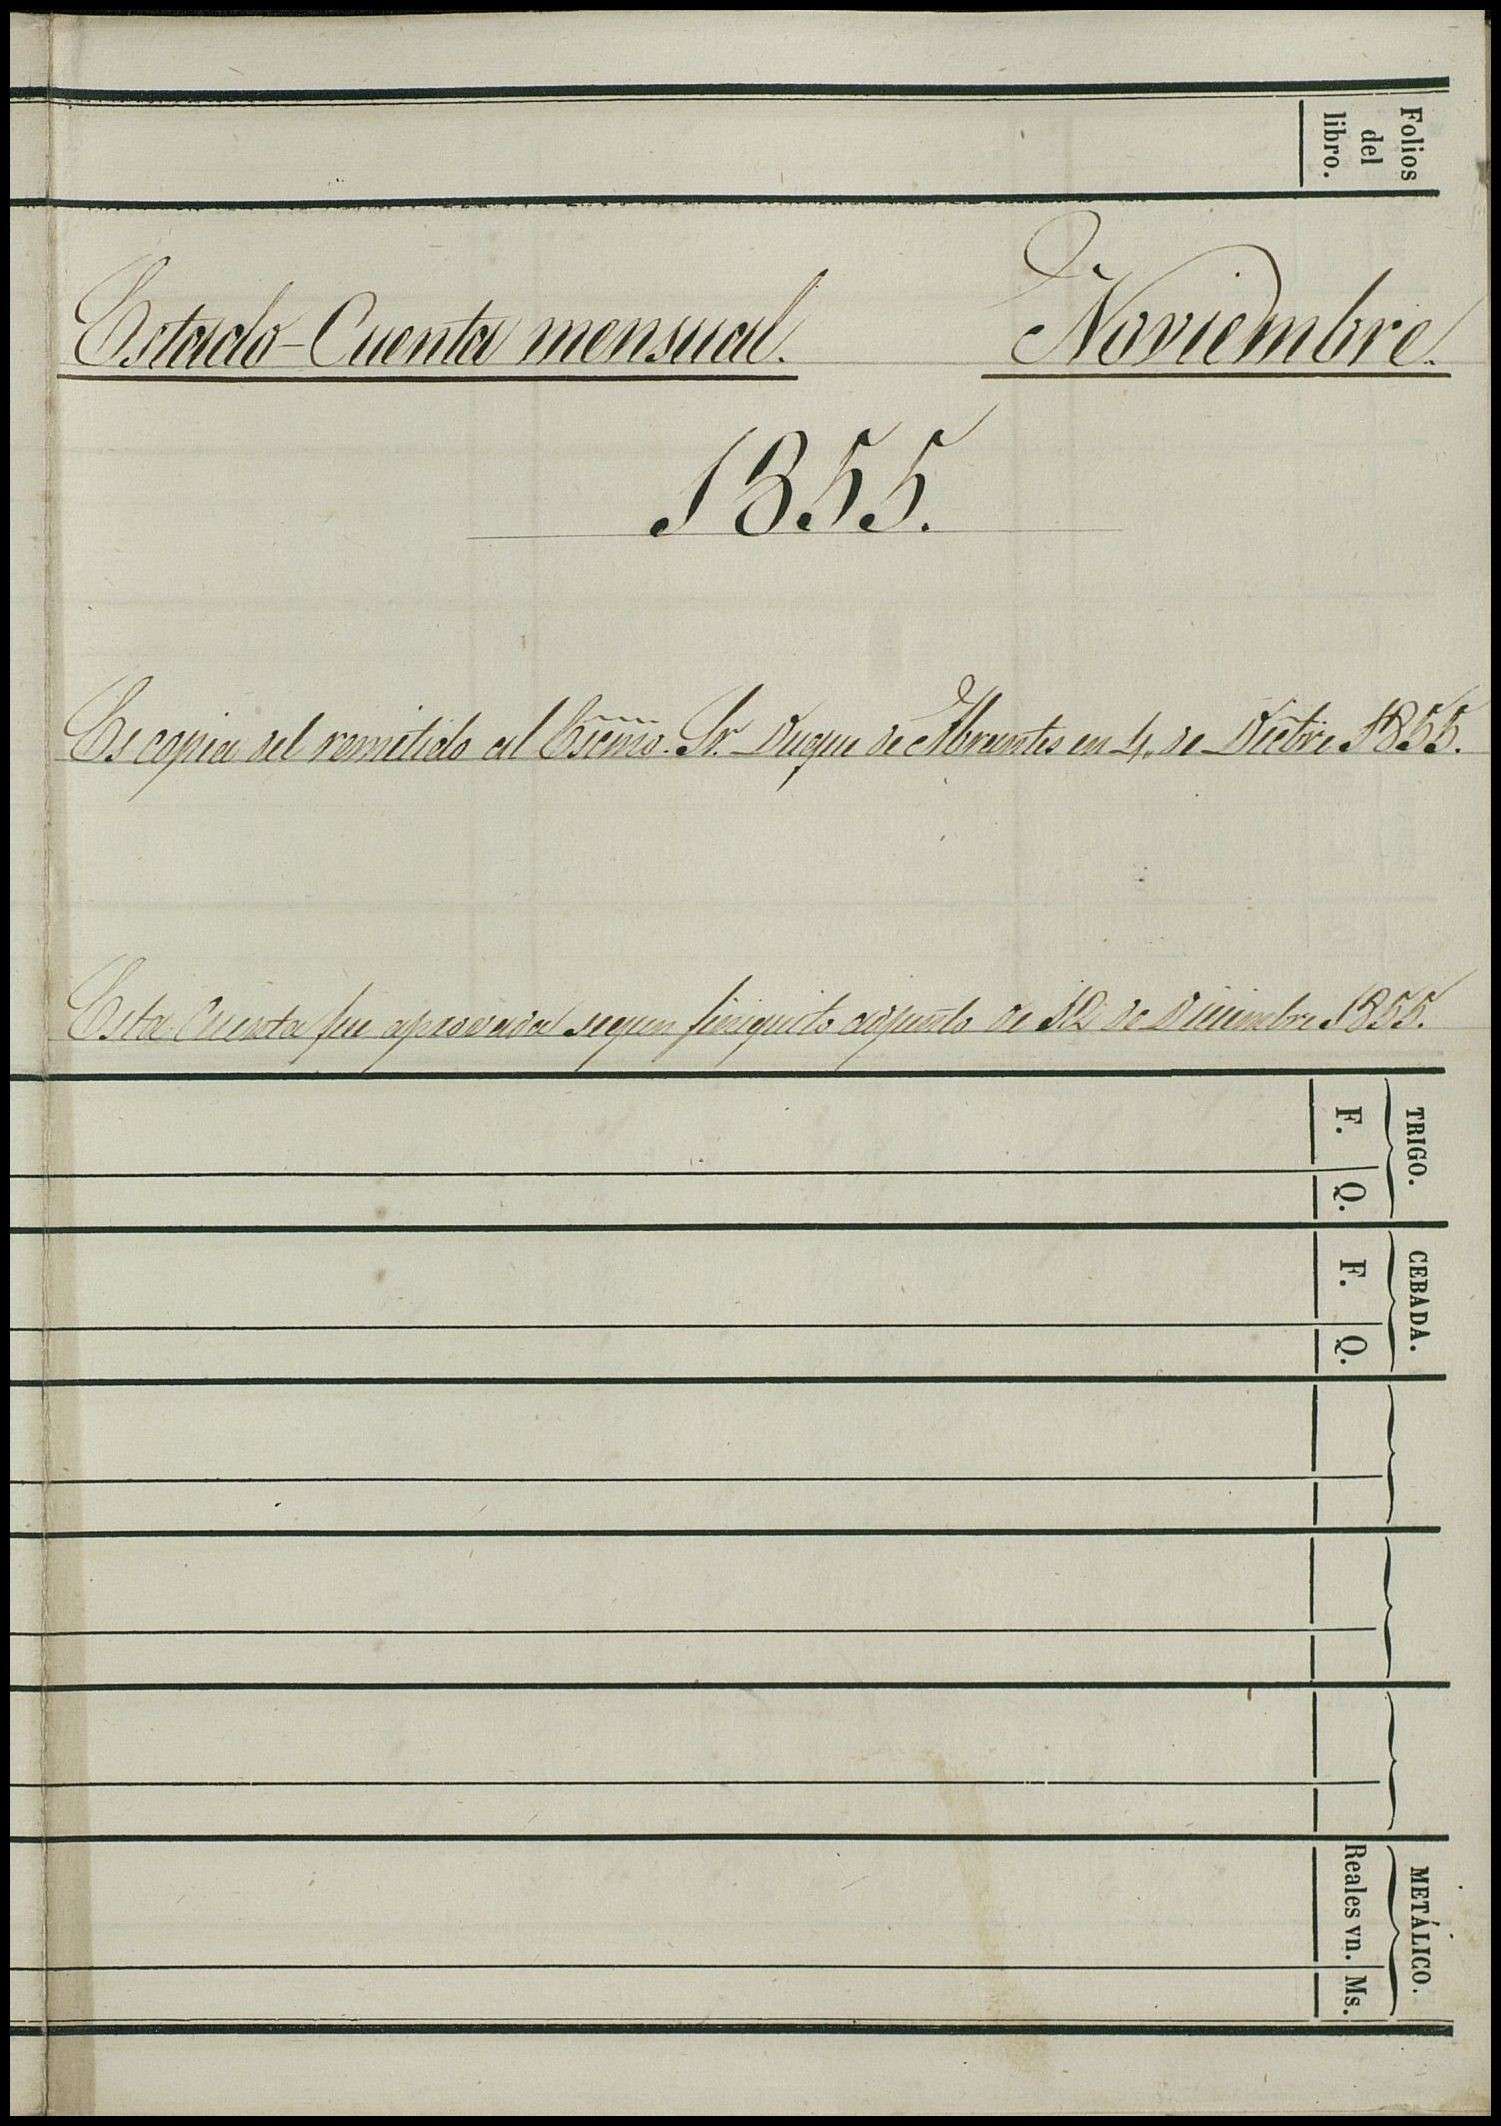 Folios
del
libro.
Estado-Cuenta mensual. Noviembre.
1855.
Es copia del remitido al Escmo. Sr. Duque de Abrantes en 4, de Dicbre 1855.
Esta Cuenta fue aprovada segun finiquito adjunto de 12 de Diciembre 1855.
TRIGO.
F. Q.
CEBADA.
F. Q.
METÁLICO.
Reales vn. Ms.